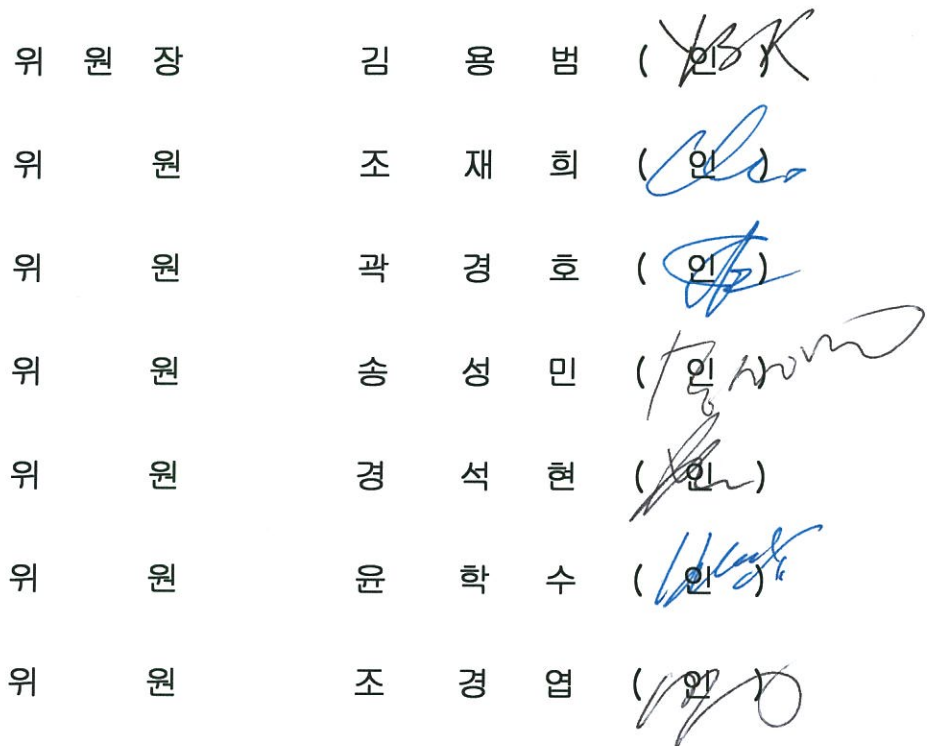 위 원 장 김 용 범 ( 인 ) YBK
위 원 조 재 희 ( 인 )
위 원 곽 경 호 ( 인 )
위 원 송 성 민 ( 인 )
위 원 경 석 현 ( 인 )
위 원 윤 학 수 ( 인 )
위 원 조 경 엽 ( 인 )